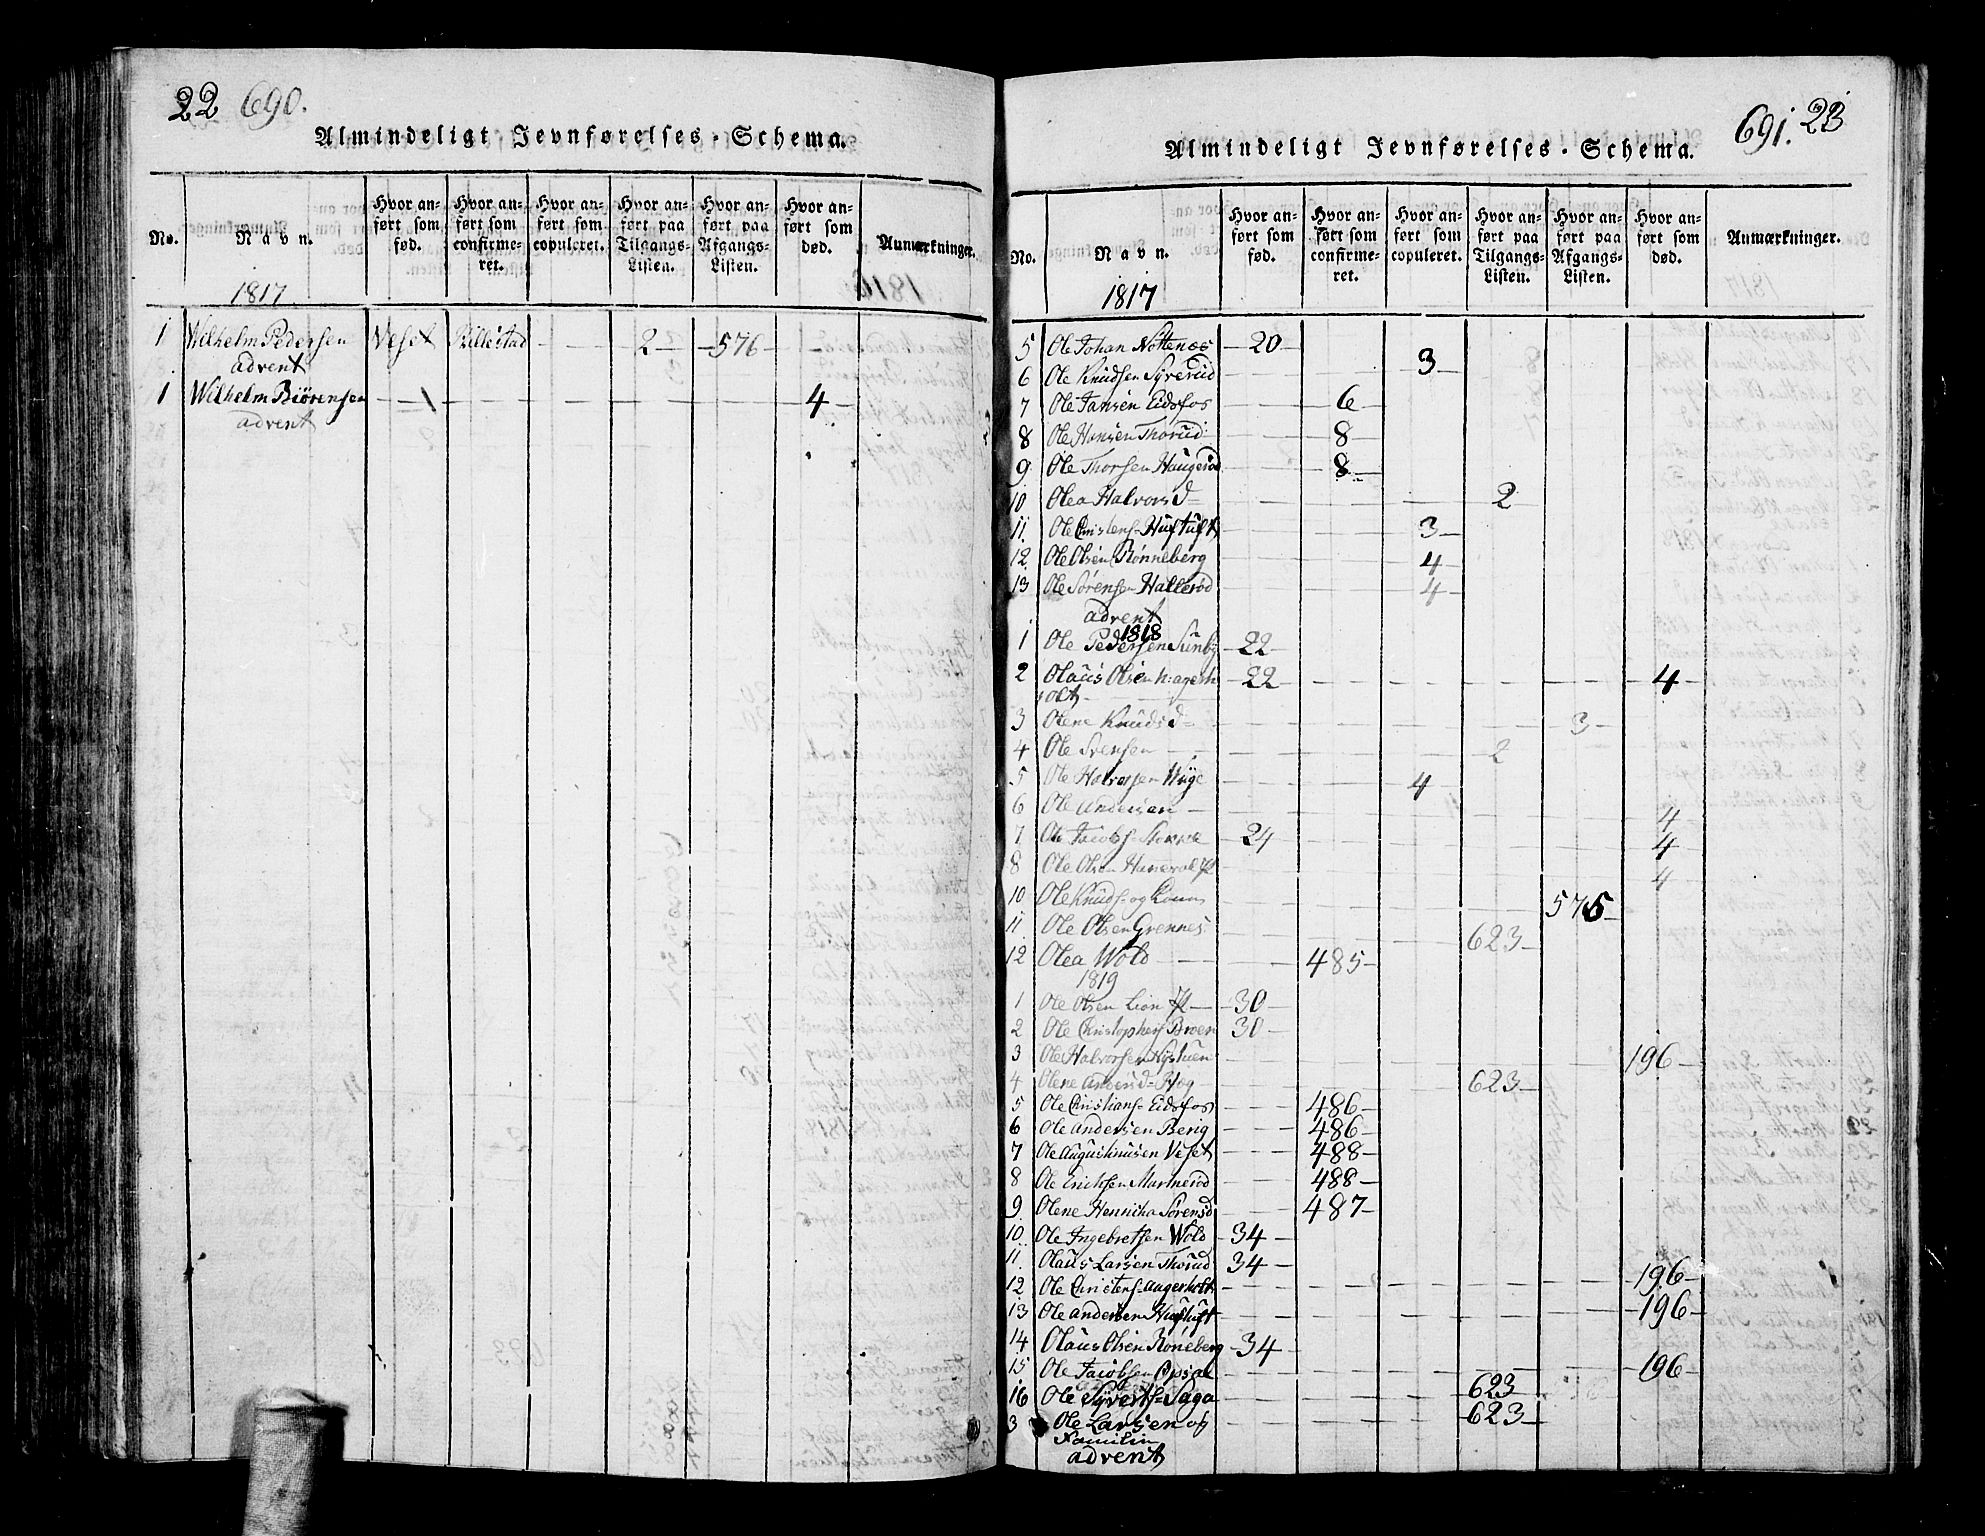 22 690.
Almindeligt Jevnførelses-Schema.
No. Navn. Hvor anført som fød. Hvor anført som confirmeret. Hvor anført som copuleret. Hvor anført paa Tilgangs-Listen. Hvor anført paa Afgangs-Listen. Hvor anført som død. Anmærkninger.
1817
1 Wilhelm Pedersen Veset 2 576
advent
1 Wilhelm Biörensen 1 4
advent
691. 23
Almindeligt Jevnførelses-Schema.
No. Navn. Hvor anført som fød. Hvor anført som confirmeret. Hvor anført som copuleret. Hvor anført paa Tilgangs-Listen. Hvor anført paa Afgangs-Listen. Hvor anført som død. Anmærkninger.
1817
5 Ole Johan Nottenæs 20
6 Ole Knudsen Syverud 3
7 Ole Jansen Eidsfos 6
8 Ole Hansen Thorud 8
9 Ole Thorsen Haugerød 8
10 Olea Halvorsd 2
11 Ole Christens- Huftuft 3
12 Ole Olsen Rønneberg 4
13 Ole Sørensen Hallerød 4
advent
1818
1 Ole Pedersen Sunby 22
2 Olaus Olsen 22 4
holt
3 Olene Knudsd- 3
4 Ole Svensen 2
5 Ole Halvorsen 4
6 Ole Andersen 4
7 Ole Jacobs- 24 4
8 Ole Olsen 4
10 Ole Knuds- og 575
11 Ole Olsen Grennes 623
12 Olea Wold 485
1819
1 Ole Olsen 30
2 Ole Christophers- 30
3 Ole Halvorsen Nystuen 196
4 Olene Andersd- 623
5 Ole Christians- Eidsfos 486
6 Ole Andersen Berg 486
7 Ole Augustinusen Veset 488
8 Ole Erichsen 488
9 Olene Henricha Sørensd 487
10 Ole Ingebretsen Wold 34
11 Olaus Larsen Thorud 34
12 Ole Christens- Angerholt 196
13 Ole Andersen Huftuft 196
14 Olaus Olsen Røneberg 34
15 Ole Jacobsen Opsal 196
16 Ole Syverts- Saga 623
3 Ole Larsen og 623
Familie
advent